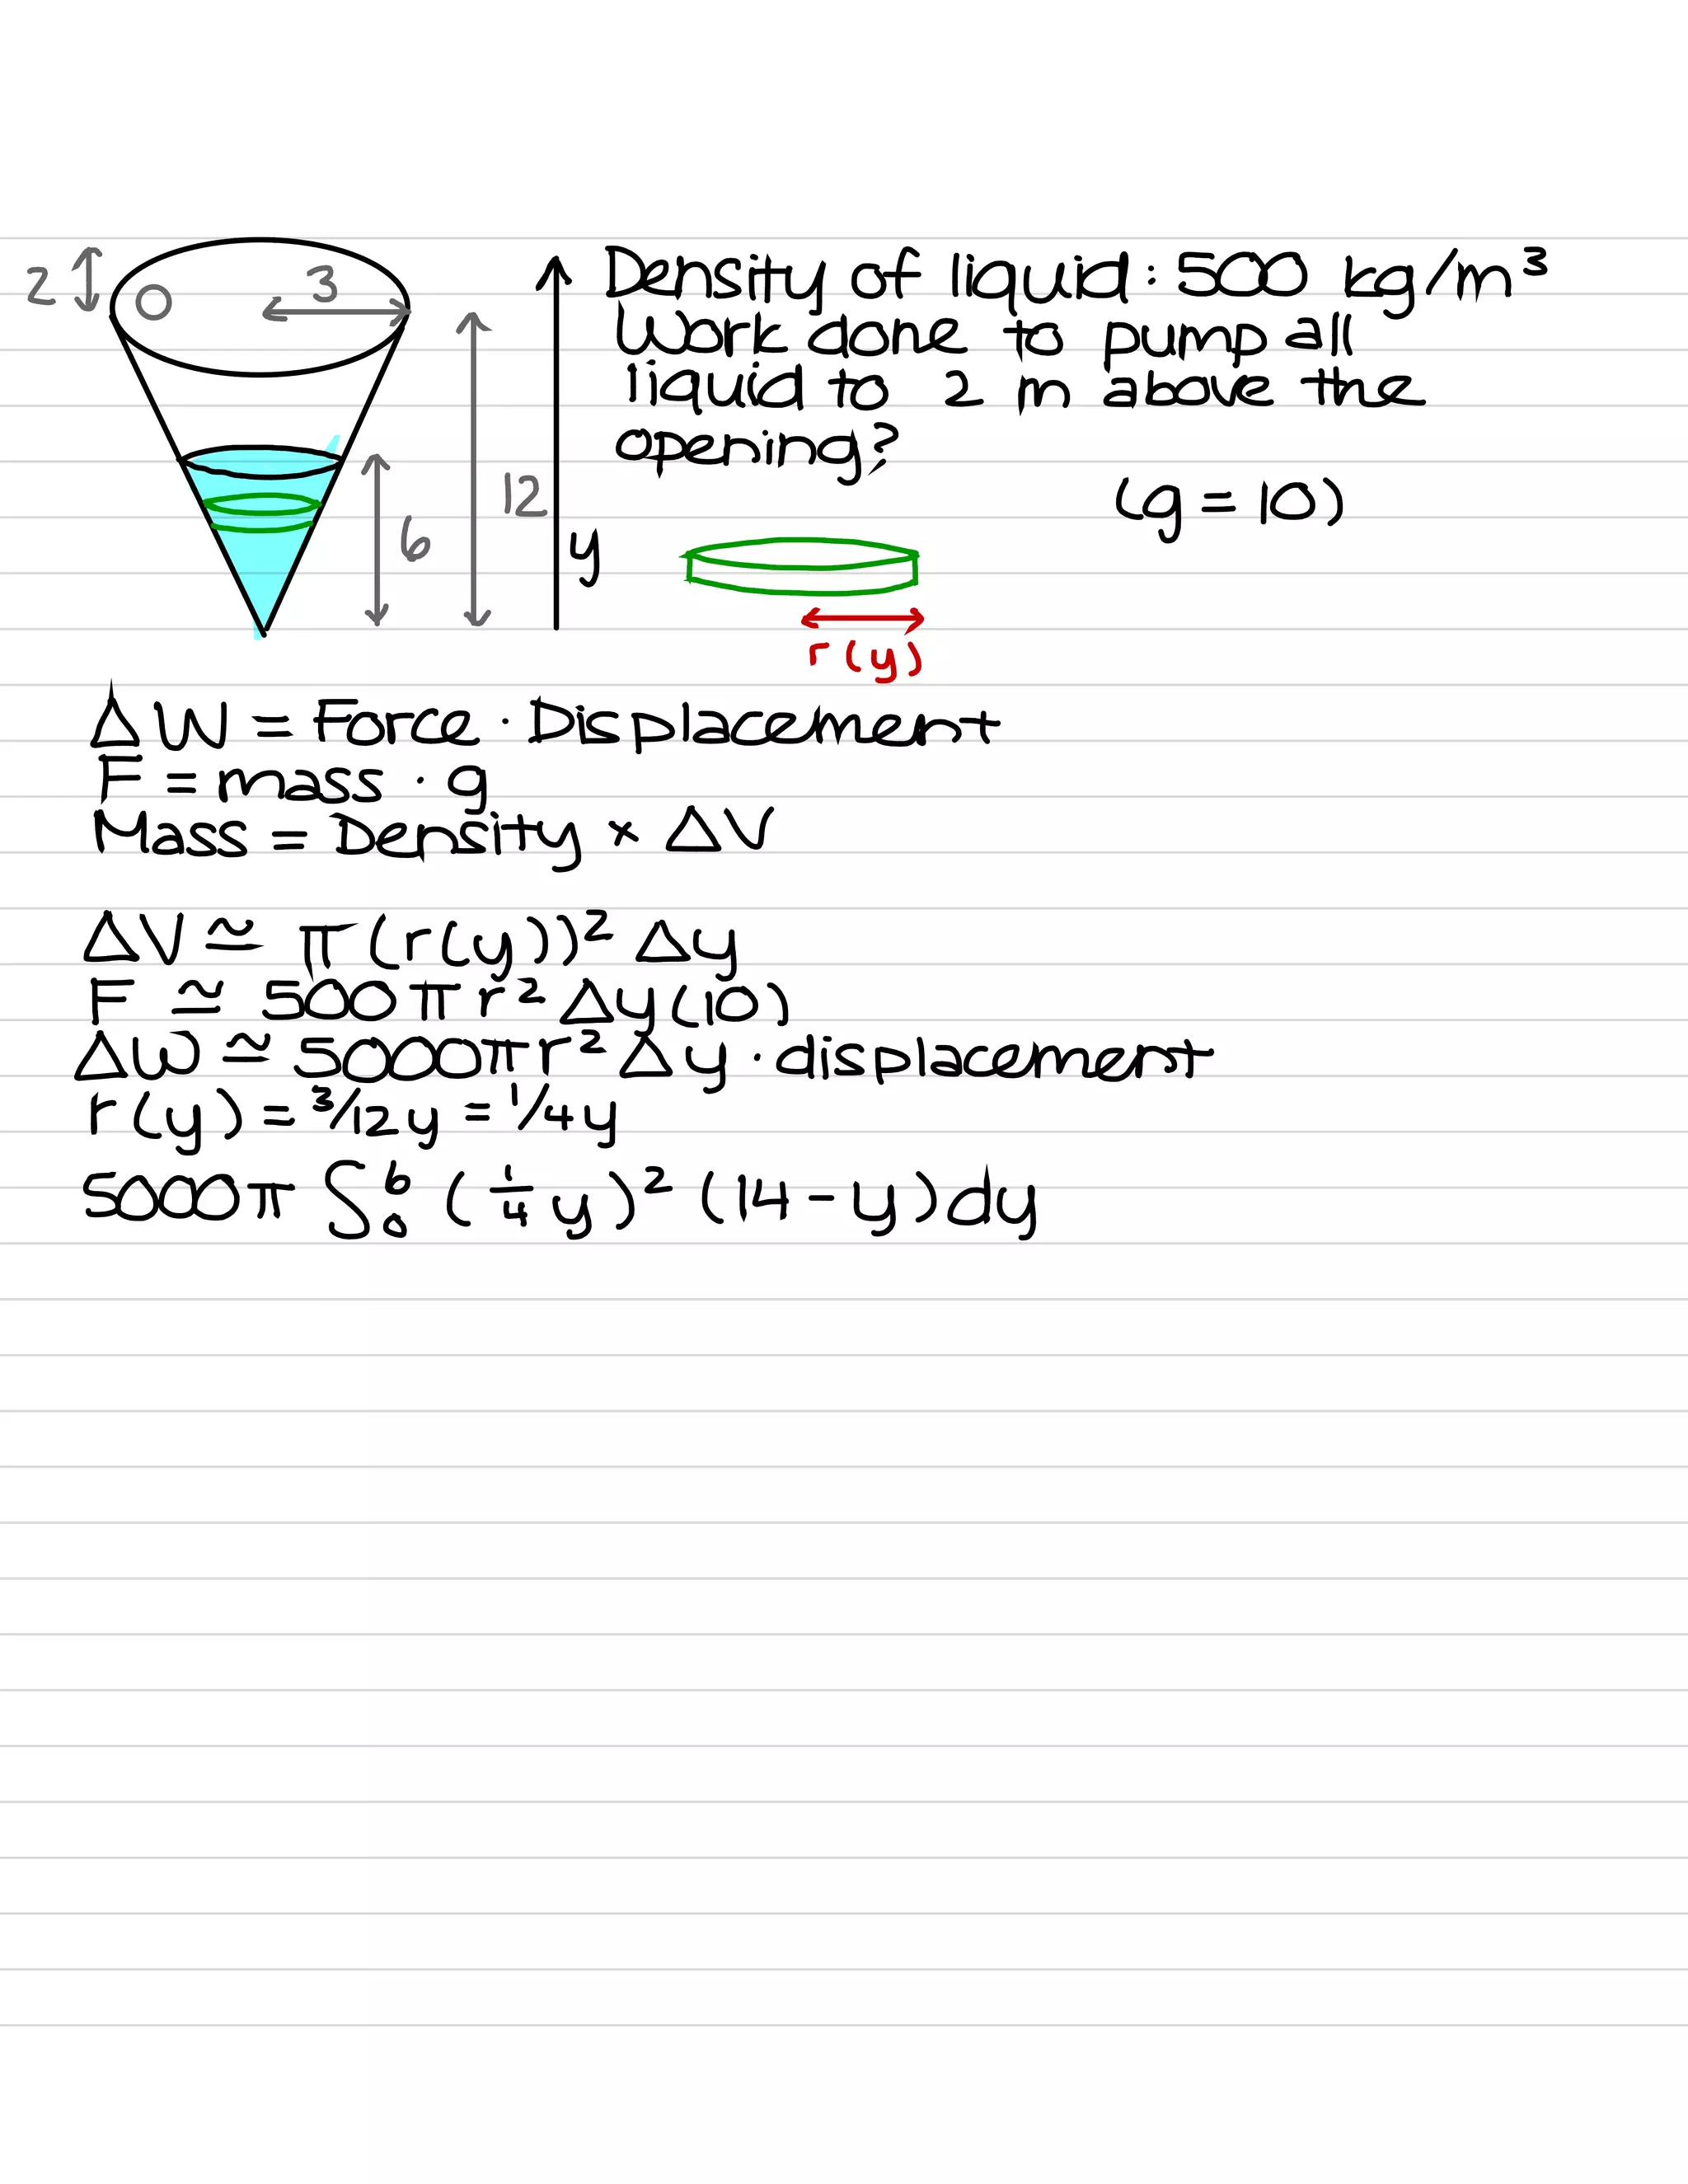 2
3
12
6
y
Density of liquid: 500 kg/m³
Work done to pump all
liquid to 2 m above the
opening?
(g = 10)
r(y)
ΔW = Force · Displacement
F = mass · g
Mass = Density × ΔV
ΔV ≅ π(r(y))² Δy
F ≅ 500πr² Δy(10)
ΔW ≅ 5000πr² Δy · displacement
r(y) = 3/12y = 1/4y
5000π ∫₀⁶ (1/4 y)² (14 - y)dy